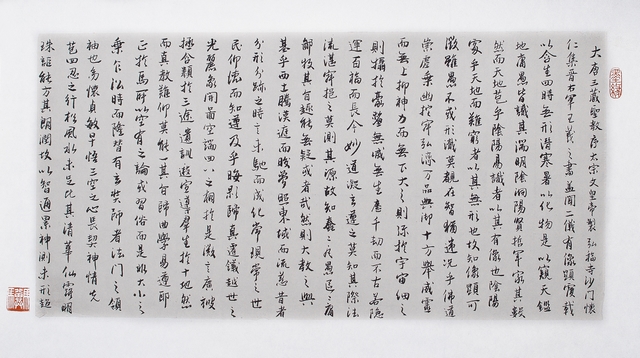 大唐三藏聖教序太宗文皇帝製弘福寺沙門懷
仁集晉右軍王羲之書蓋聞二儀有像顯覆載
以含生四時無形潛寒暑以化物是以窺天鑑
地庸愚皆識其端明陰洞陽賢哲罕窮其數
然而天地苞乎陰陽易識者以其有像也陰陽
處乎天地而難窮者以其無形也故知像顯可
徵雖愚不惑形潛莫覩在智猶迷況乎佛道
崇虛乘幽控寂弘濟萬品典御十方舉威靈
而無上抑神力而無下大之則彌於宇宙細之
則攝於毫釐無滅無生歷千劫而不古若隱
運百福而長今妙道凝玄遵之莫知其際法
流湛寂挹之莫測其源故知蠢蠢凡愚區區庸
鄙投其旨趣能無疑惑者哉然則大教之興
基乎西土騰漢庭而皎夢照東域而流慈昔者
分形分跡之時言未馳而成化常現常之世
民仰德而知遵及乎晦影歸真遷儀越世之
光麗象開圖空端四八之相於是微言廣被
拯含類於三途遺訓遐宣導群生於十地然
而真教難仰莫能一其旨歸曲學易遵邪
正於焉所以空有之論或習俗而是非大小之
乘乍沿時而隆替有玄奘師者法門之領
袖也幼懷貞敏早悟三空之心長契神情先
苞四忍之行松風水月未足比其清華仙露明
珠詎能方其朗潤故以智通累神測未形超